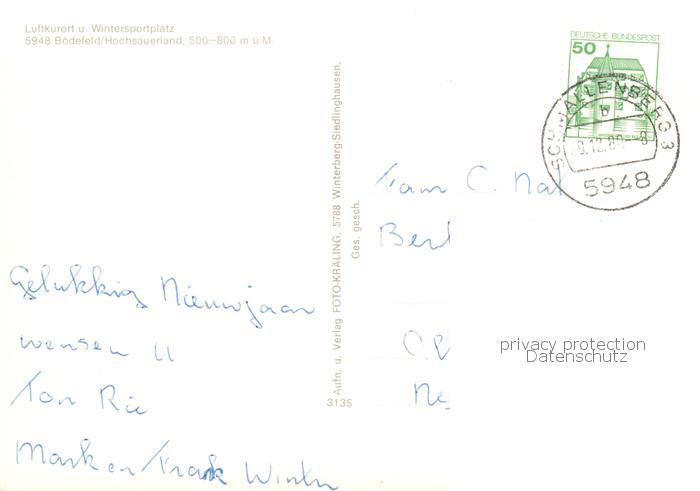 Luftkurort u. Wintersportplatz
5948 Bödefeld/Hochsauerland, 500–800 m ü.M.
DEUTSCHE BUNDESPOST
50
SCHMALLENBERG 3
b
.12.80 - 8
5948
Aufn. u. Verlag FOTO-KRÄLING, 5788 Winterberg-Siedlinghausen,
Ges. gesch.
3135
Fam C. Nat
Berl
Ne
privacy protection
Datenschutz
Gelukkig Nieuwjaar
wensen U
Ton Rie
Mark en Frank